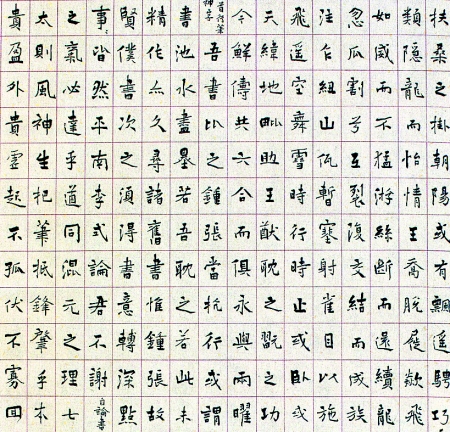 扶桑之掛朝陽或有飄遥騁
類隱龍而怡情王喬脫屣欻飛
如威而不猛游絲斷而還續龍
忽瓜割兮互裂復交結而成族
注紐山暫蹇射雀目以施
飛遥空舞雪時行時止或臥或
天緯地毗助王猷耽之翫之功
今鮮傳共六合而俱永與兩曜
吾書比之鍾張當抗行或謂
書池水盡墨若吾耽之若此未
精作亦久尋諸舊書惟鍾張故
賢僕書次之須得書意轉深點
事皆然平南李式論君不謝自論書
之氣必達乎道同混元之理七
太則風神生把筆抵鋒肇乎本
貴盈外貴虛起不孤伏不寡回